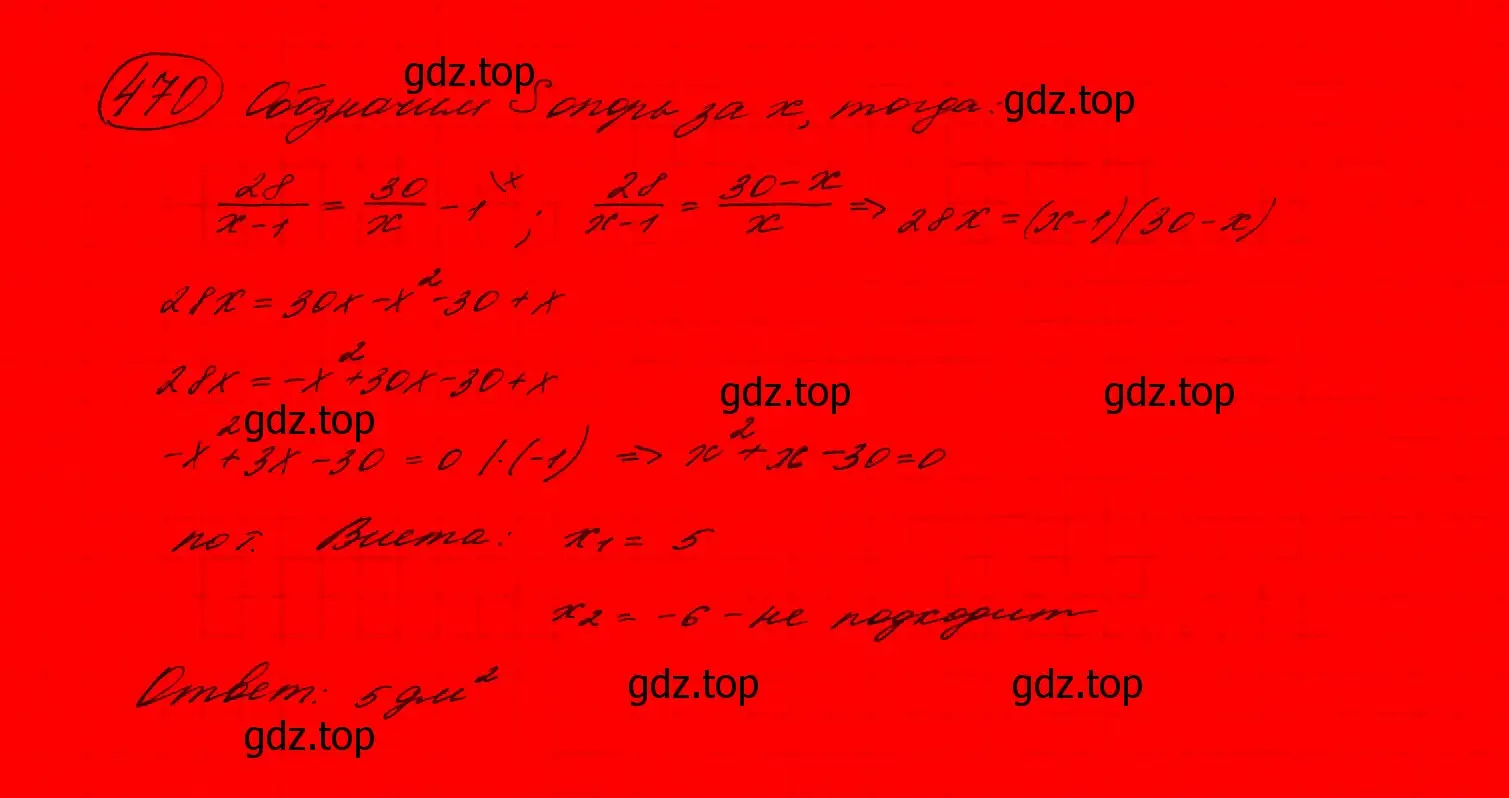 gdz.top
470 Обозначим S опоры за x, тогда: gdz.top
28/(x-1) = 30/x - 1 \x ; 28/(x-1) = (30-x)/x => 28x = (x-1)(30-x)
28x = 30x - x² - 30 + x
28x = -x² + 30x - 30 + x gdz.top gdz.top
gdz.top
-x² + 3x - 30 = 0 /·(-1) => x² + x - 30 = 0
по т. Виета: x₁ = 5
x₂ = -6 - не подходит
Ответ: 5 дм² gdz.top gdz.top
gdz.top